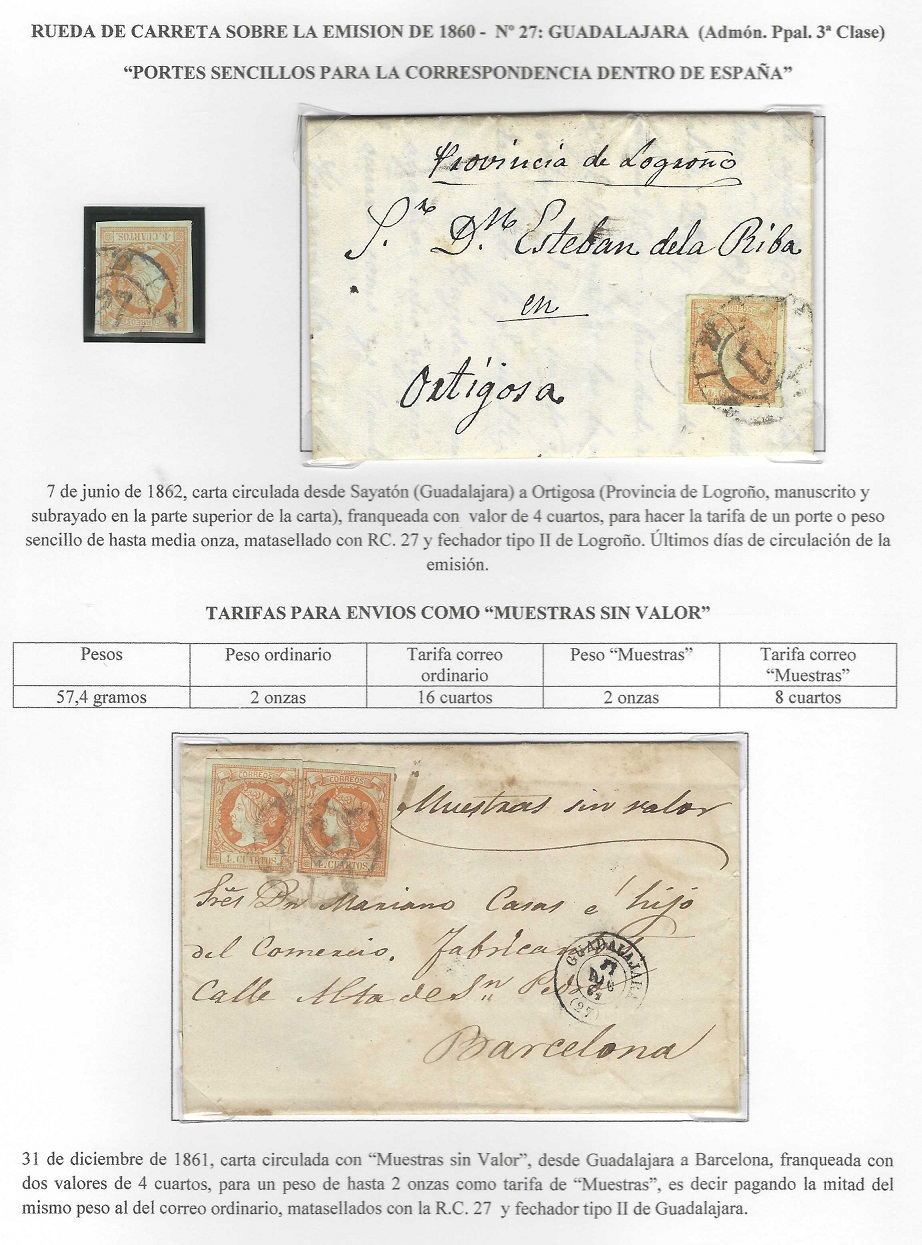 RUEDA DE CARRETA SOBRE LA EMISION DE 1860 - Nº 27: GUADALAJARA (Admón. Ppal. 3ª Clase)
“PORTES SENCILLOS PARA LA CORRESPONDENCIA DENTRO DE ESPAÑA”
4 CUARTOS
Provincia de Logroño
S.n D.n Esteban de la Riba
en
Ortigosa
CORREOS
7 de junio de 1862, carta circulada desde Sayatón (Guadalajara) a Ortigosa (Provincia de Logroño, manuscrito y
subrayado en la parte superior de la carta), franqueada con valor de 4 cuartos, para hacer la tarifa de un porte o peso
sencillo de hasta media onza, matasellado con RC. 27 y fechador tipo II de Logroño. Últimos días de circulación de la
emisión.
TARIFAS PARA ENVIOS COMO “MUESTRAS SIN VALOR”
Pesos Peso ordinario Tarifa correo ordinario Peso “Muestras” Tarifa correo “Muestras”
57,4 gramos 2 onzas 16 cuartos 2 onzas 8 cuartos
CORREOS CORREOS
4 CUARTOS 4 CUARTOS
Muestras sin valor
Sres Dn Mariano Casas é hijo
del Comercio. Fabrican
Calle Alta de Sn Pedro
Barcelona
GUADALAJARA
(27)
31 de diciembre de 1861, carta circulada con “Muestras sin Valor”, desde Guadalajara a Barcelona, franqueada con
dos valores de 4 cuartos, para un peso de hasta 2 onzas como tarifa de “Muestras”, es decir pagando la mitad del
mismo peso al del correo ordinario, matasellados con la R.C. 27 y fechador tipo II de Guadalajara.